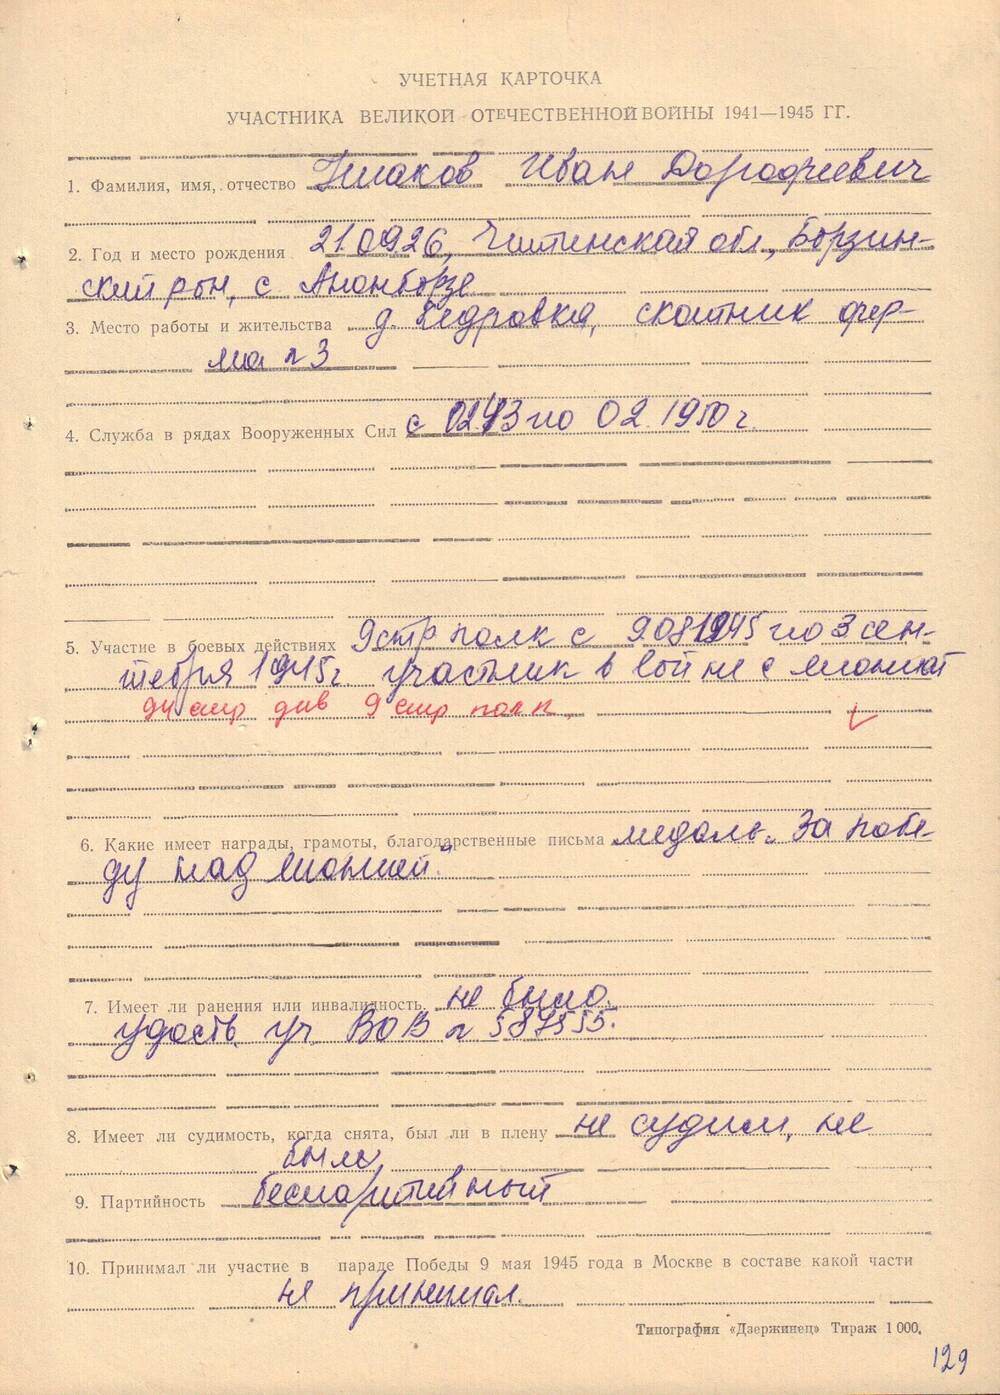 УЧЕТНАЯ КАРТОЧКА
УЧАСТНИКА ВЕЛИКОЙ ОТЕЧЕСТВЕННОЙ ВОЙНЫ 1941—1945 ГГ.
1. Фамилия, имя, отчество Иван Дорофеевич
2. Год и место рождения 21.0926, Читинская обл., Борзин-
ский рон, с
3. Место работы и жительства д. Кедровка, скотник фер-
ма №3
4. Служба в рядах Вооруженных Сил с 02.43 по 02.1950 г.
5. Участие в боевых действиях 9 стр полк с 9.08.1945 по 3 сен-
тября 1945 г участник в войне с
94 стр див 9 стр полк.
6. Какие имеет награды, грамоты, благодарственные письма медаль „За побе-
ду над Японией."
7. Имеет ли ранения или инвалидность, не было.
удость. уч. ВОВ № 587555.
8. Имеет ли судимость, когда снята, был ли в плену не судим, не
был
9. Партийность беспартийный
10. Принимал ли участие в параде Победы 9 мая 1945 года в Москве в составе какой части
не принимал.
Типография «Дзержинец» Тираж 1 000.
129